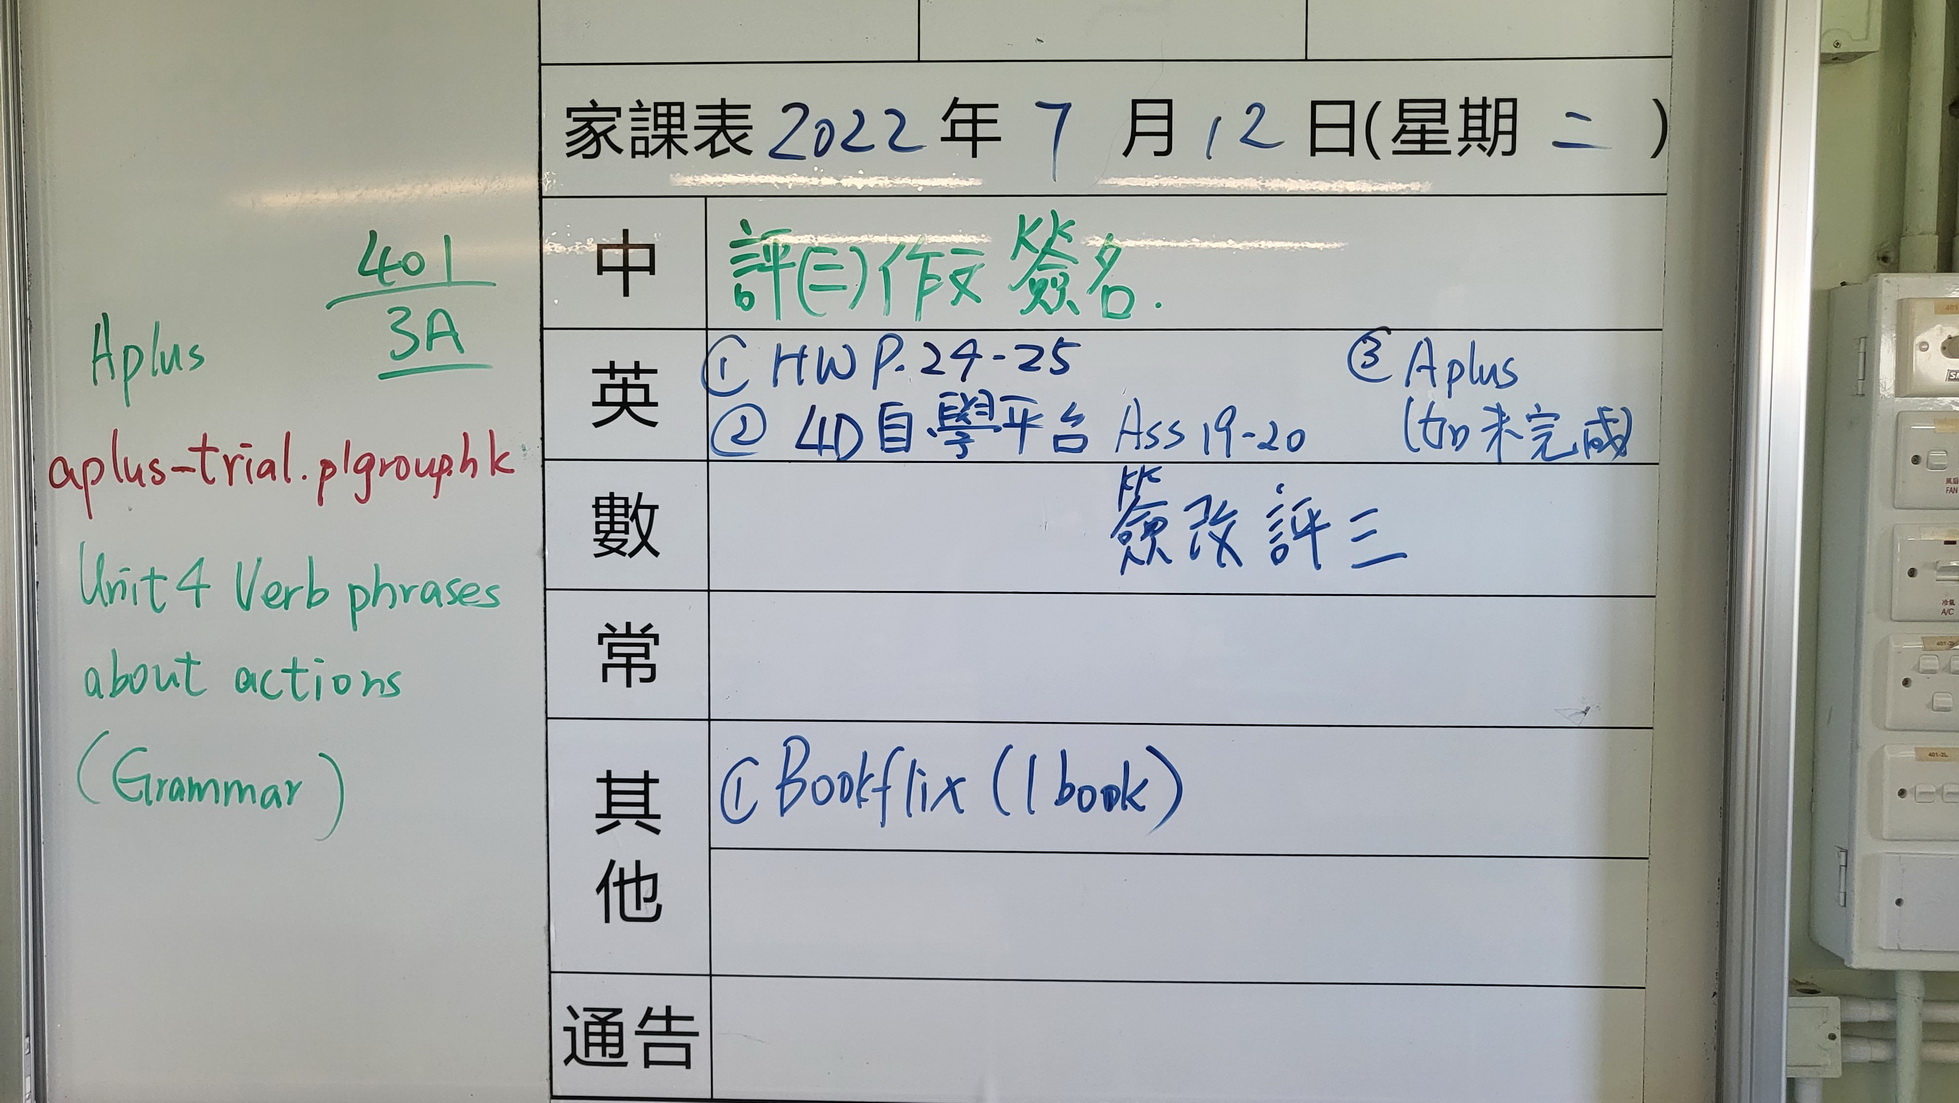 401
3A
Aplus
aplus-trial.plgroup.hk
Unit 4 Verb phrases
about actions
(Grammar)
家課表 2022 年 7 月 12 日(星期 二 )
中 評(三)作文 簽名.
英 ① HW P.24-25 ③ Aplus
② 4D自學平台 Ass 19-20 (如未完成)
數 簽改評三
常
其他 ① Bookflix (1 book)
通告